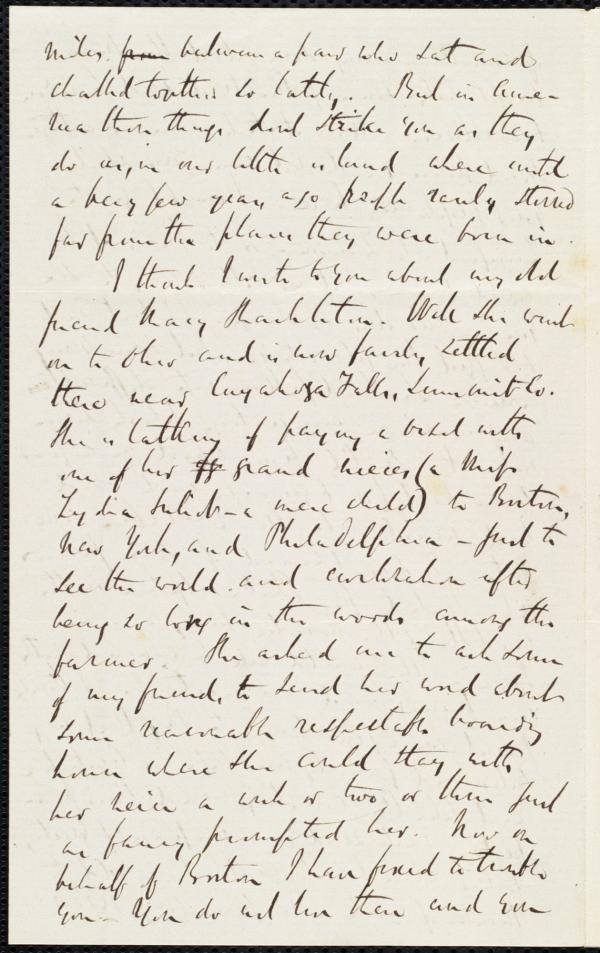 miles from between a pair who sat and
chatted together so lately. But in Ame-
rica those things don't strike you as they
do us, in our little island where until
a very few years ago people rarely stirred
far from the place they were born in.
I think I wrote to you about my old
friend Mary Shackleton. Well she went
on to Ohio and is now fairly settled
there near Cuyahoga Falls, Summit Co.
She is talking of paying a visit with
one of her grand nieces (a Miss
Lydia – a mere child) to Boston,
New York, and Philadelphia – just to
see the world and civilization after
being so long in the woods among the
farmers. She asked me to ask some
of my friends to send her word about
some reasonable respectable boarding
house where she could stay with
her neice a week or two or three just
as fancy prompted her. Now on
behalf of Boston I have fixed to trouble
you – You do not live there and you